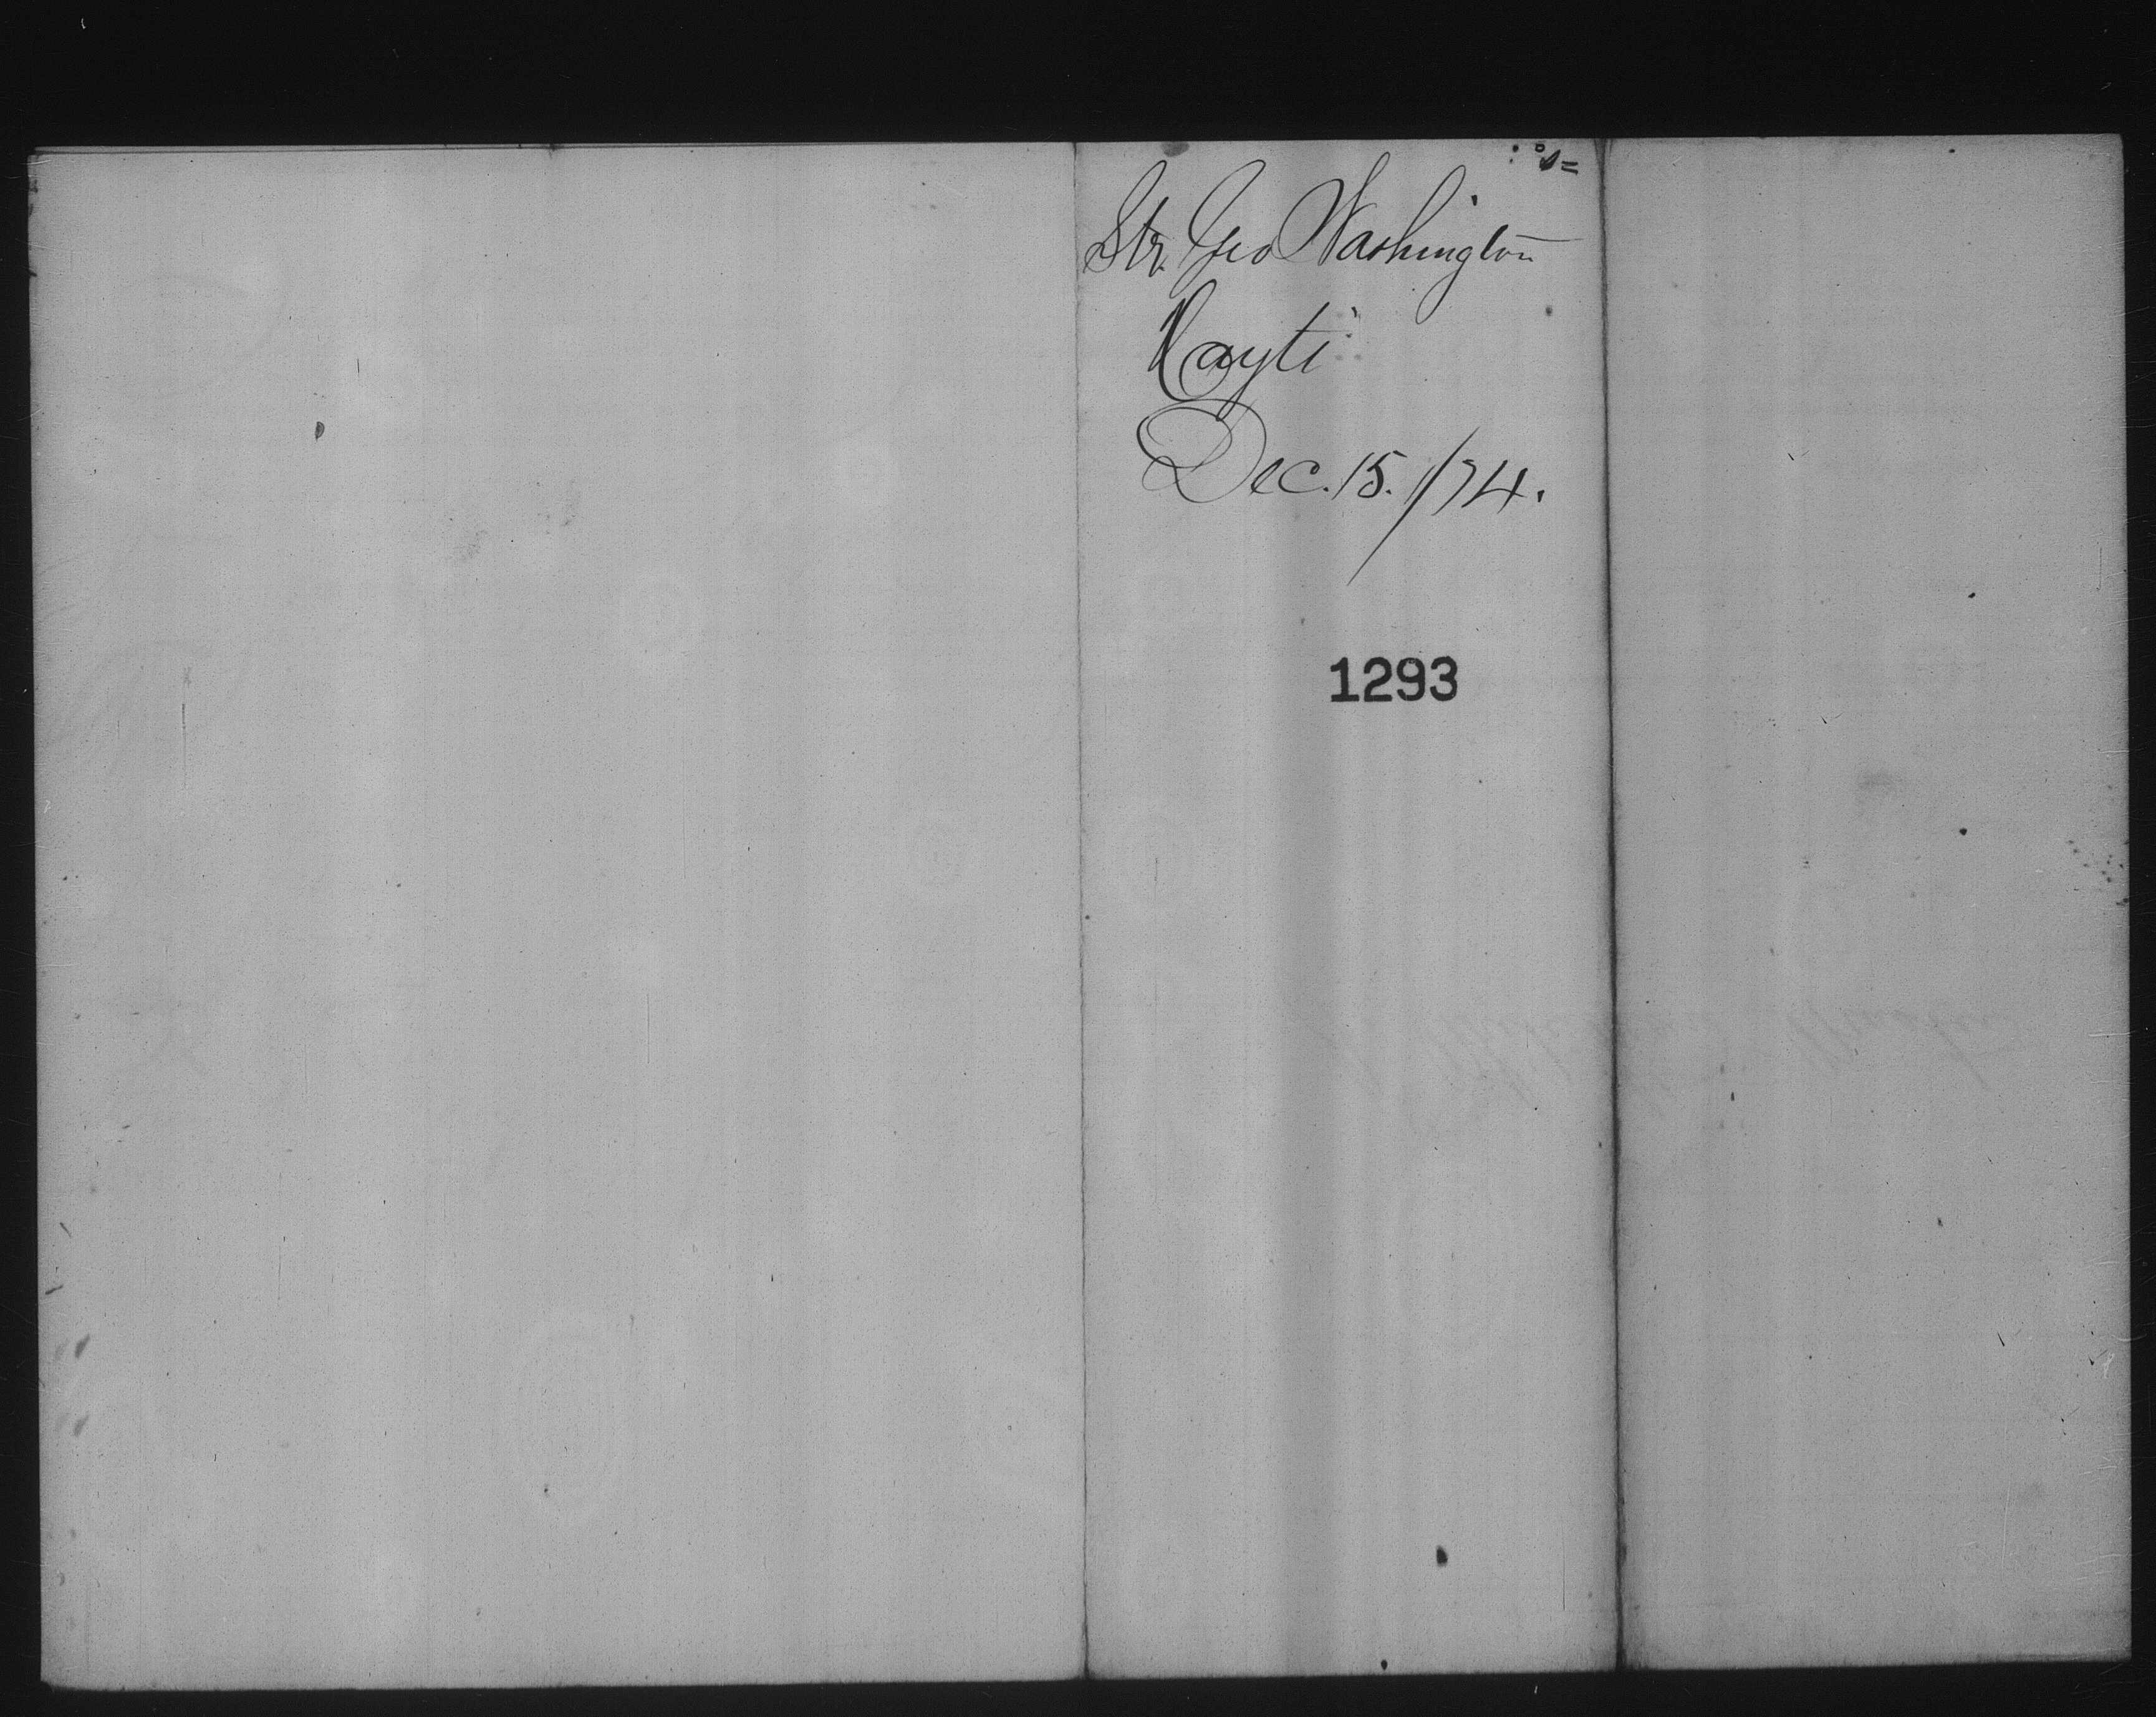 Str. Geo Washington
Hayti
Dec. 15. /74.
1293